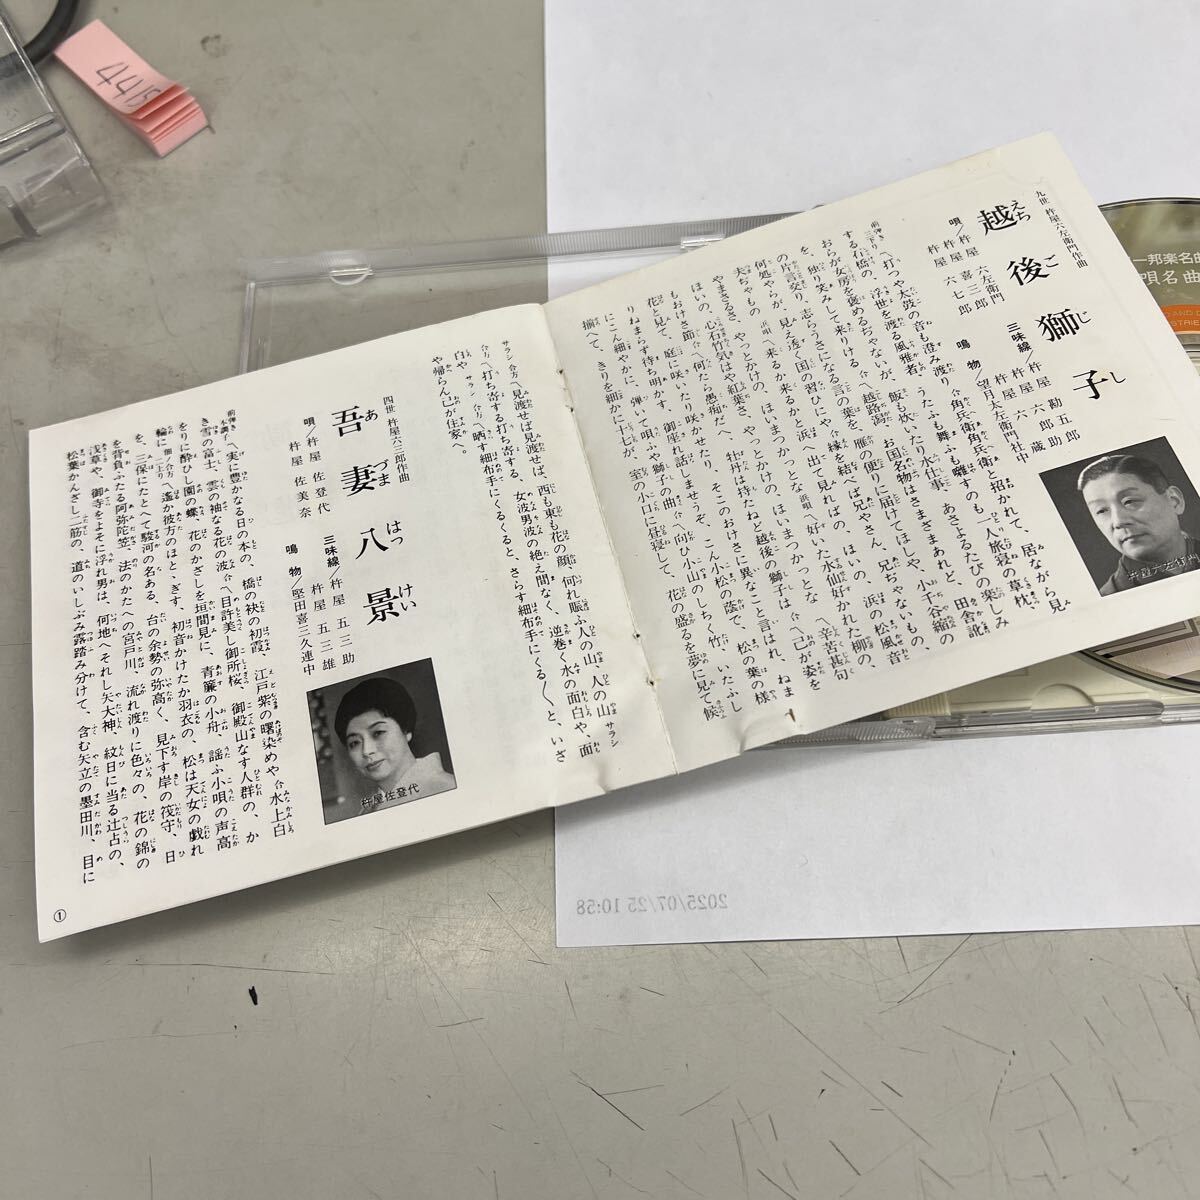 九世 杵屋六左衛門作曲
越後獅子
えちごじし
唄／杵屋 六左衛門
杵屋 喜三郎
杵屋 六七郎
三味線／杵屋 勘五郎
杵屋 六一郎
鳴物／望月太左衛門社中
杵屋六左衛門
前弾き
三下り
〽打つや太鼓の音も澄み渡り 合 角兵衛角兵衛と招かれて、居ながら見
する石橋の、浮世を渡る風雅者、うたふも舞ふも囃すのも一人旅寝の草枕、
おらが女房を褒めるぢゃないが、飯も炊いたり水仕事、あさよるたびの楽しみ
を、独り笑みして来りける。合〽越路潟、お国名物はさまざまあれど、田舎訛
の片言交り、志らうさになる言の葉を、雁の便りに届けてほしや、小千谷縮の
何処やらが、見え透く国の習ひにや、合 縁を結べば兄やさん、兄ぢゃないもの、
夫ぢゃもの。浜唄〽来るか来るかと浜へ出て見ればの、ほいの、浜の松風音
やまさるさ、やっとかけの、ほいまつかっとな 浜唄〽好いた水仙好かれた柳の、
ほいの、心石竹気はや紅葉さ、やっとかけの、ほいまつかっとな 合〽辛苦甚句
もおけさ節 合〽何たら愚痴だへ、牡丹は持たねど越後の獅子は 合〽己が姿を
花と見て、庭に咲いたり咲かせたり、そこのおけさに異なこと言はれ、ねま
りねまらず待ち明かす、御座れ話しませうぞ、こん小松の蔭で、松の葉の様
にこん細やかに、弾いて唄ふや獅子の曲 合〽向ひ小山のしちく竹、いたふし
揃へて、きりを細かに十七が、室の小口に昼寝して、花の盛るを夢に見て候
サラシ 合方〽見渡せば見渡せば、西も東も花の顔、何れ賑ふ人の山、人の山 サラシ
合り〽打ち寄する打ち寄する、女波男波の絶え間なく、逆巻く水の面白や、面
白や サラシ 合り〽晒す細布手にくるくると、さらす細布手にくるくると、いざ
や帰らん己が住家へ。
四世 杵屋六三郎作曲
吾妻八景
あづまはっけい
唄／杵屋 佐登代
杵屋 佐美奈
三味線／杵屋 五三助
杵屋 五三雄
鳴物／堅田喜三久連中
杵屋佐登代
前弾き
本調子〽実に豊かなる日の本の、橋の袂の初霞、江戸紫の曙染めや 合 水上白
き雪の富士、雲の袖なる花の波 合〽目許美し御所桜、御殿山なす人群の、か
をりに酔ひし園の蝶、花のかざしを垣間見に、青簾の小舟、謡ふ小唄の声高
輪に
〽遙か彼方のほとゝぎす、初音かけたか羽衣の、松は天女の戯れ
を、三保にたとへて駿河の名ある、台の余勢の弥高く、見下す岸の筏守、日
を背負ふたる阿弥陀笠、法のかたへの宮戸川、流れ渡りに色々の、花の錦の
浅草や、御寺をよそに浮れ男は、何地へそれし矢大神、紋日に当る辻占の、
松葉かんざし二筋の、道のいしぶみ露踏み分けて、含む矢立の墨田川、目に
①
4415
邦楽名曲
唄名曲
2025/07/25 10:58